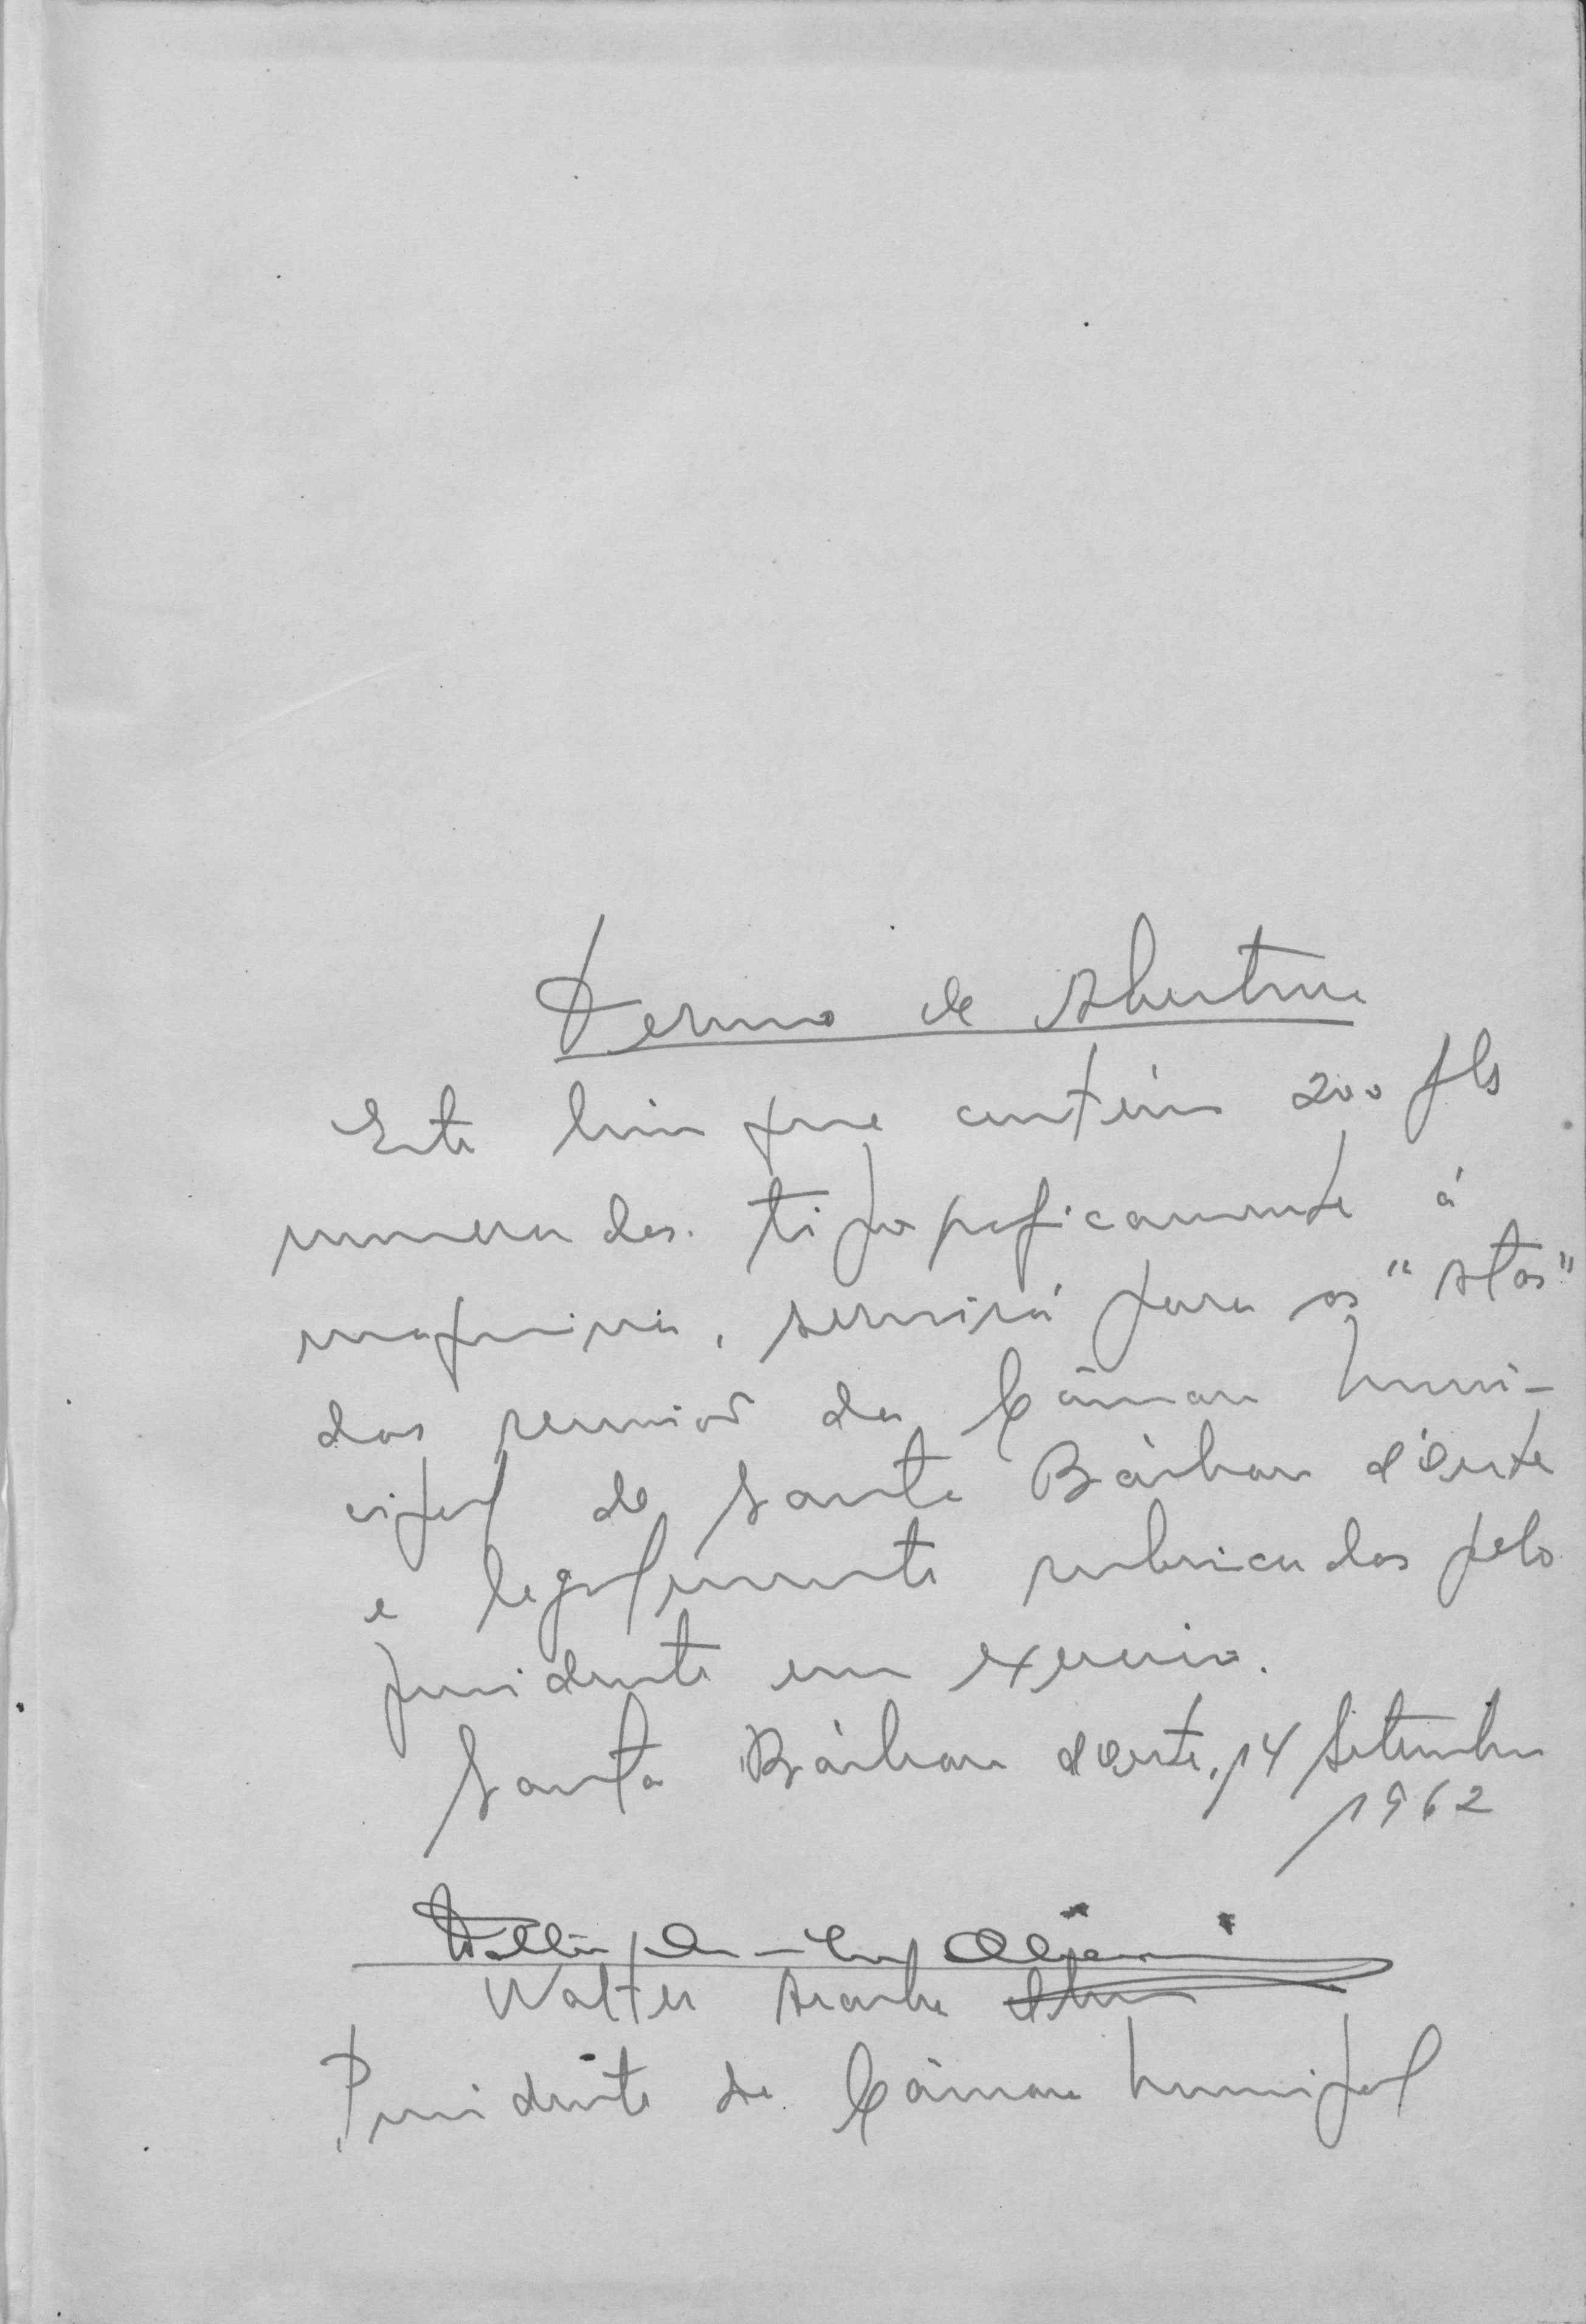 Termo de Abertura
Este livro que contém 200 fls
numeradas tipograficamente á
maquina, servirá para as "Atas"
das reuniões da Câmara Muni-
cipal de Santa Bárbara d'Oeste
e legalmente rubricadas pelo
presidente em exercicio.
Santa Bárbara d'Oeste, 14 Setembro
1962
Walter
Presidente da Câmara Municipal